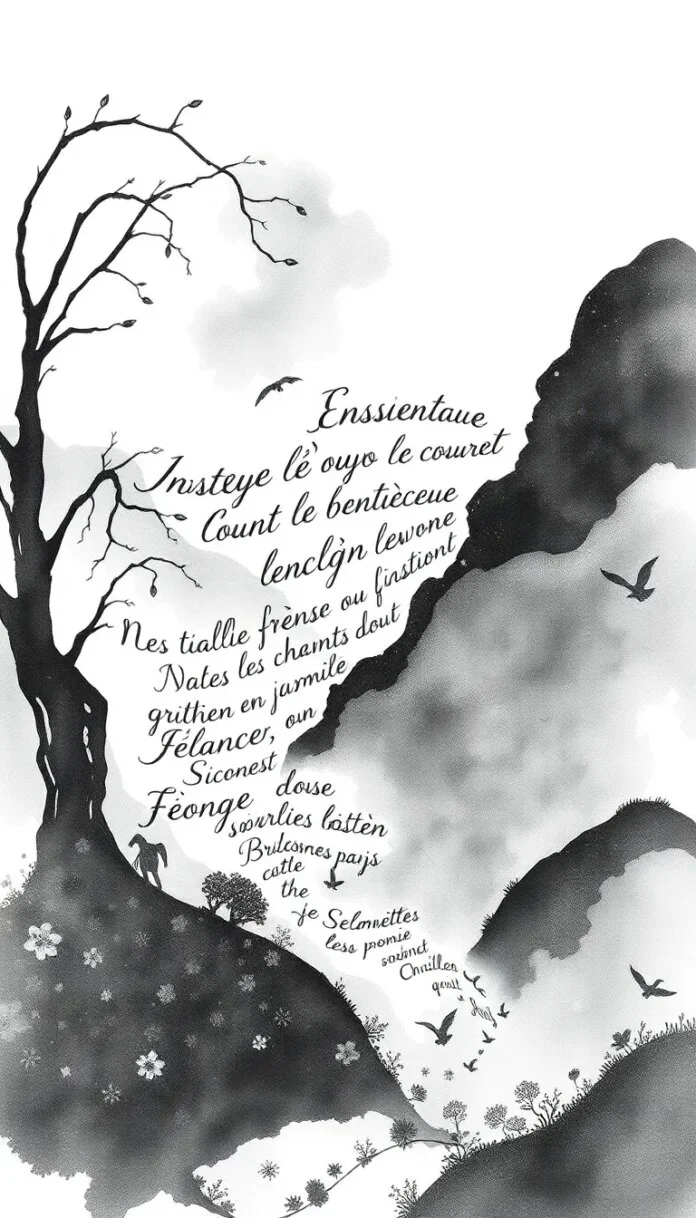 Enssientaue
Insteye lè ouyo le couret
Count le bentièceue
lenclğn lewone
Nes tiallie frènse ou finstiont
Nates les chamts dout
grithen en jurmile
Félancer, oun
Siconest
Fèonge douse
lostten
Brulcosnes pays
catle
the
je Selomettes
less promie
Onuillen